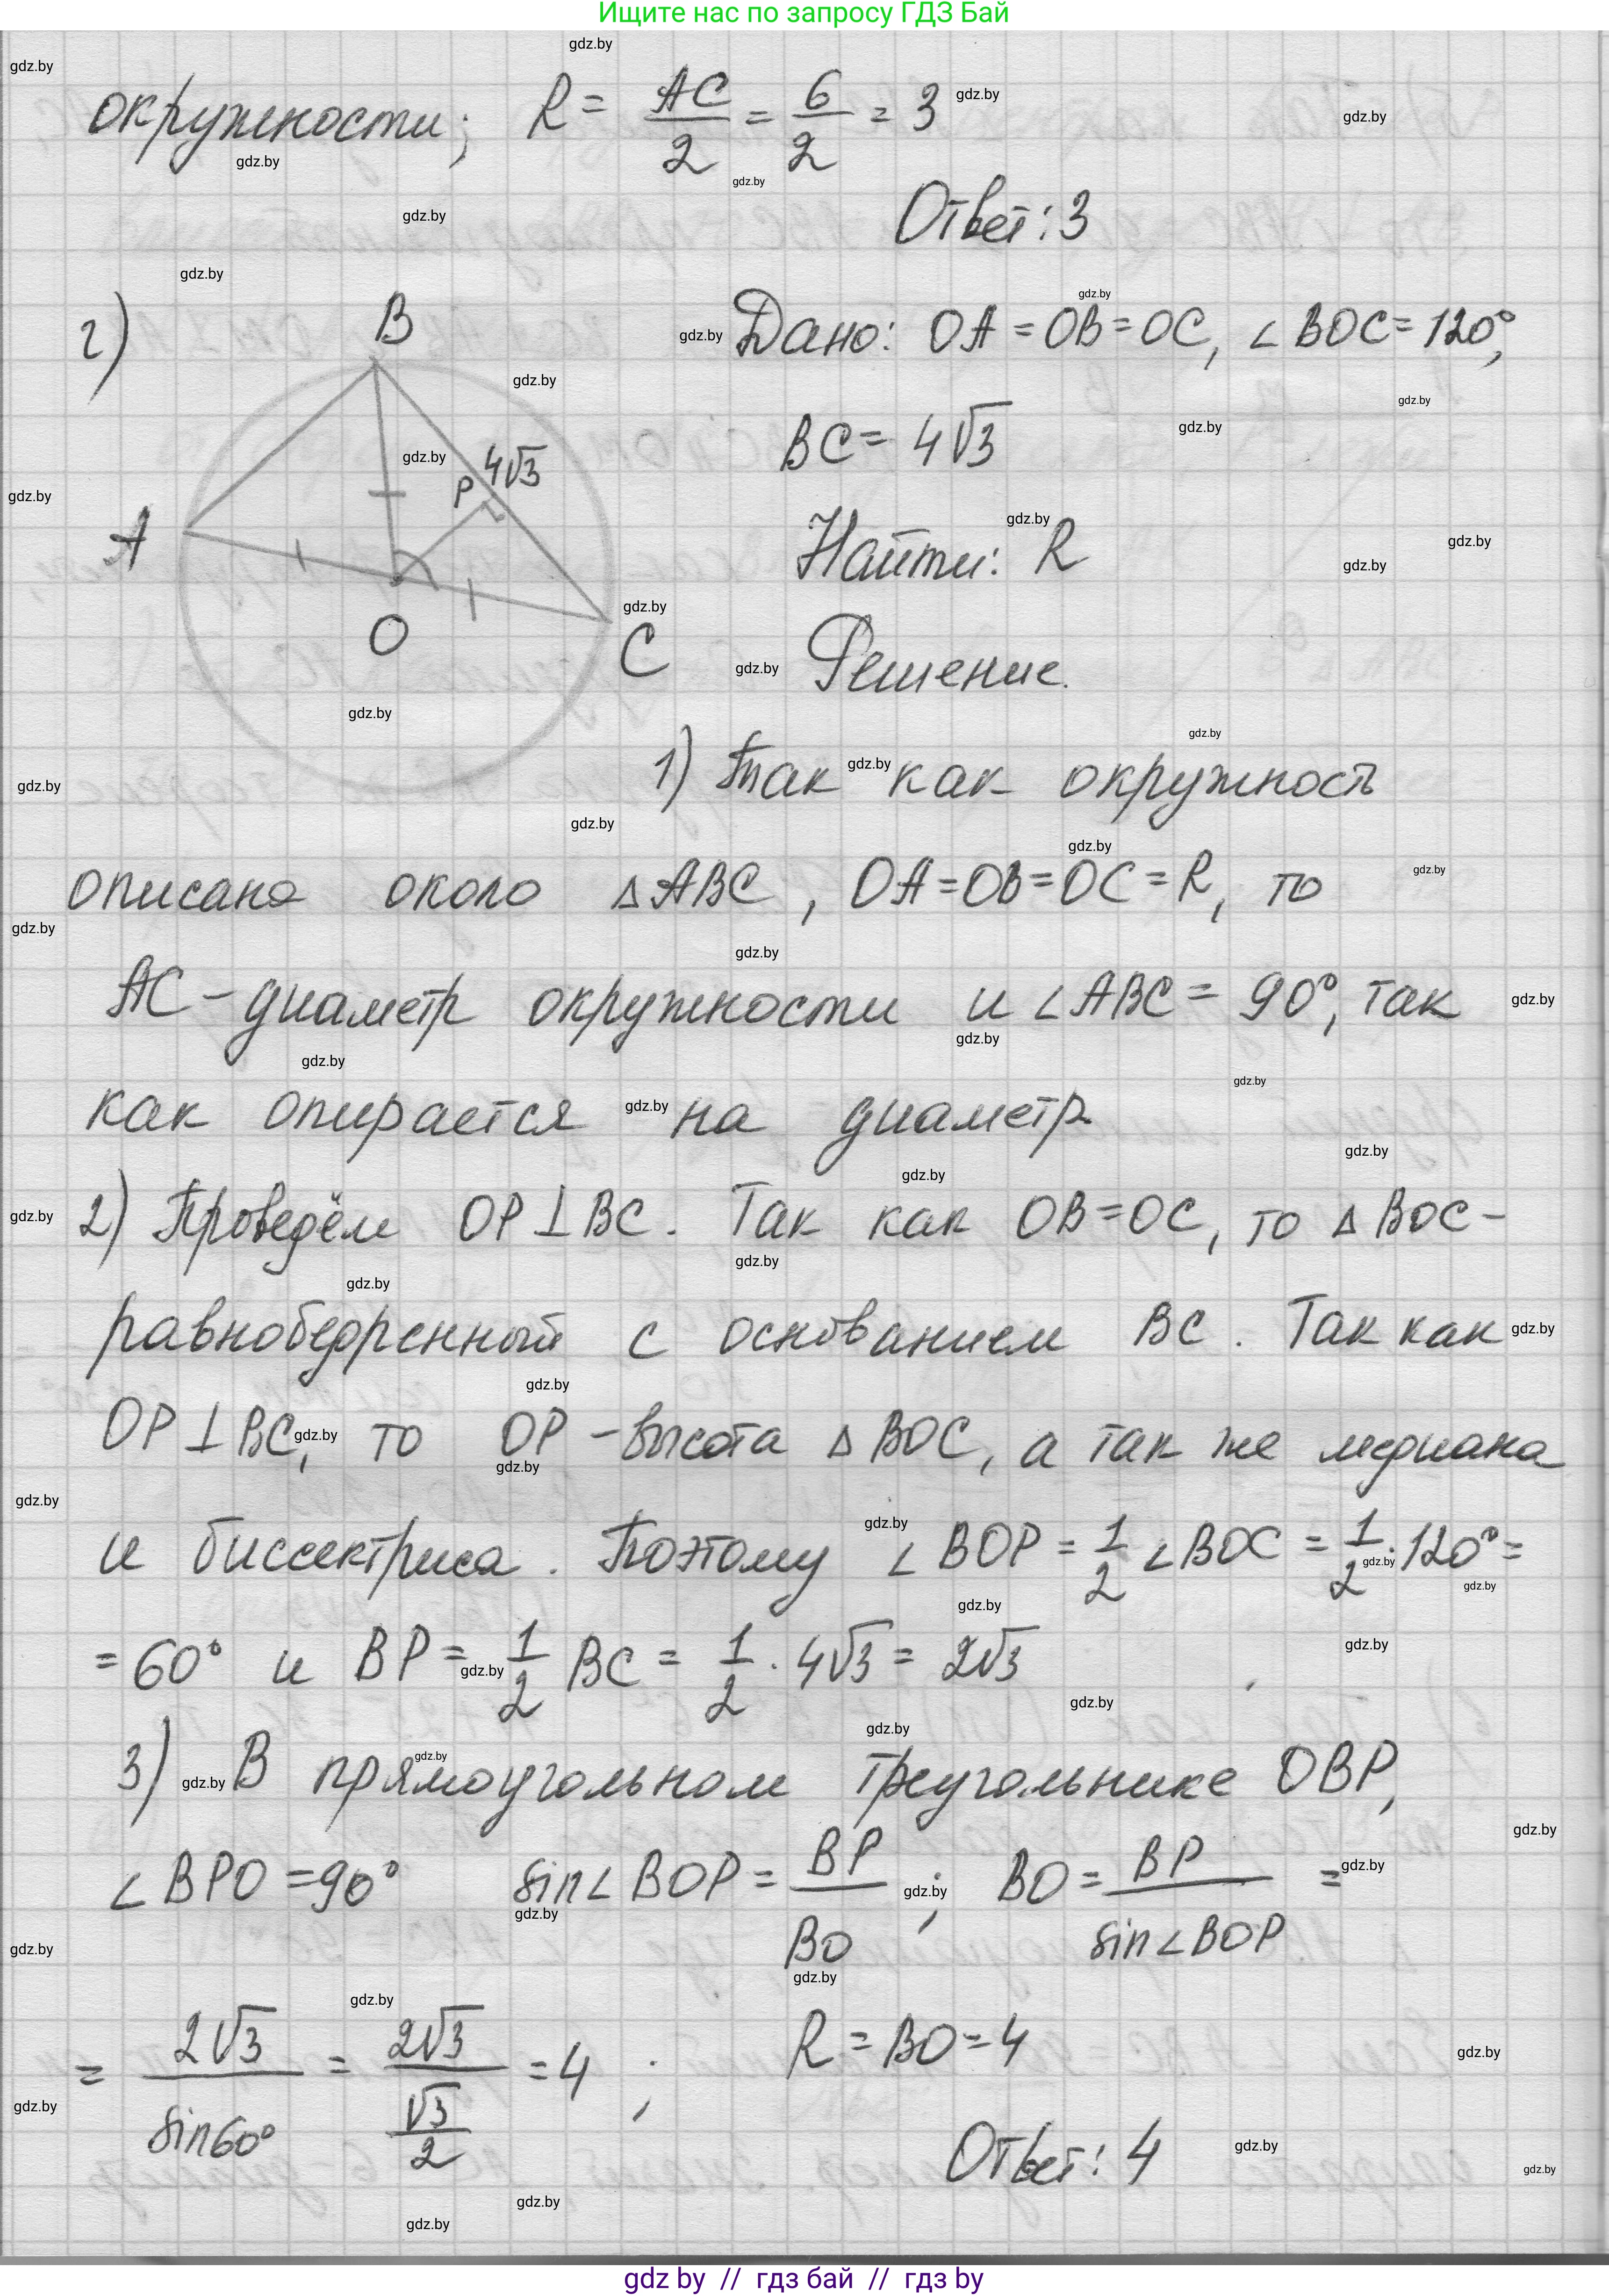 Ищите нас по запросу ГДЗ Бай
окружности; R = AC/2 = 6/2 = 3
Ответ: 3
г)
B
A
O
C
P
4√3
Дано: OA = OB = OC, ∠BOC = 120°,
BC = 4√3
Найти: R
Решение.
1) Так как окружность
описана около △ABC, OA=OB=OC=R, то
AC - диаметр окружности и ∠ABC = 90°, так
как опирается на диаметр
2) Проведём OP⊥BC. Так как OB=OC, то △BOC -
равнобедренный с основанием BC. Так как
OP⊥BC, то OP - высота △BOC, а так же медиана
и биссектриса. Поэтому ∠BOP = 1/2 ∠BOC = 1/2 · 120° =
= 60° и BP = 1/2 BC = 1/2 · 4√3 = 2√3
3) В прямоугольном треугольнике OBP,
∠BPO = 90° sin∠BOP = BP/BO; BO = BP/sin∠BOP =
= 2√3/sin60° = 2√3/(√3/2) = 4; R = BO = 4
Ответ: 4
gdz by // гдз бай // гдз by